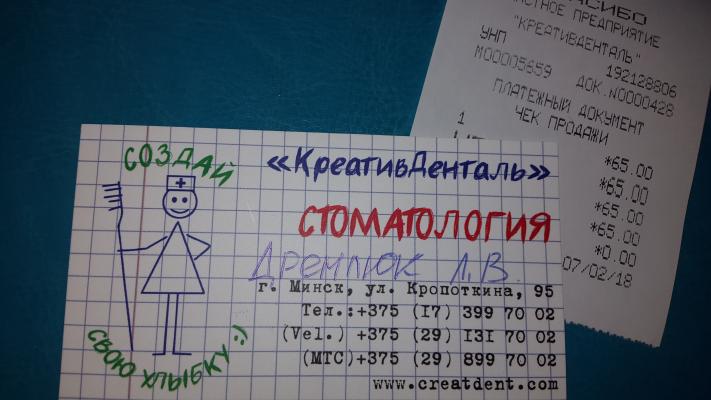 СОЗДАЙ
СВОЮ УЛЫБКУ :)
«КреативДенталь»
СТОМАТОЛОГИЯ
Дремлюк Л.В.
г. Минск, ул. Кропоткина, 95
Тел.:+375 (17) 399 70 02
(Vel.) +375 (29) 131 70 02
(МТС)+375 (29) 899 70 02
www.creatdent.com
СПАСИБО
ЧАСТНОЕ ПРЕДПРИЯТИЕ
"КРЕАТИВДЕНТАЛЬ"
УНП 192128806
М00005659 ДОК.N0000428
ПЛАТЕЖНЫЙ ДОКУМЕНТ
ЧЕК ПРОДАЖИ
1 *65.00
*65.00
*65.00
*65.00
*0.00
07/02/18